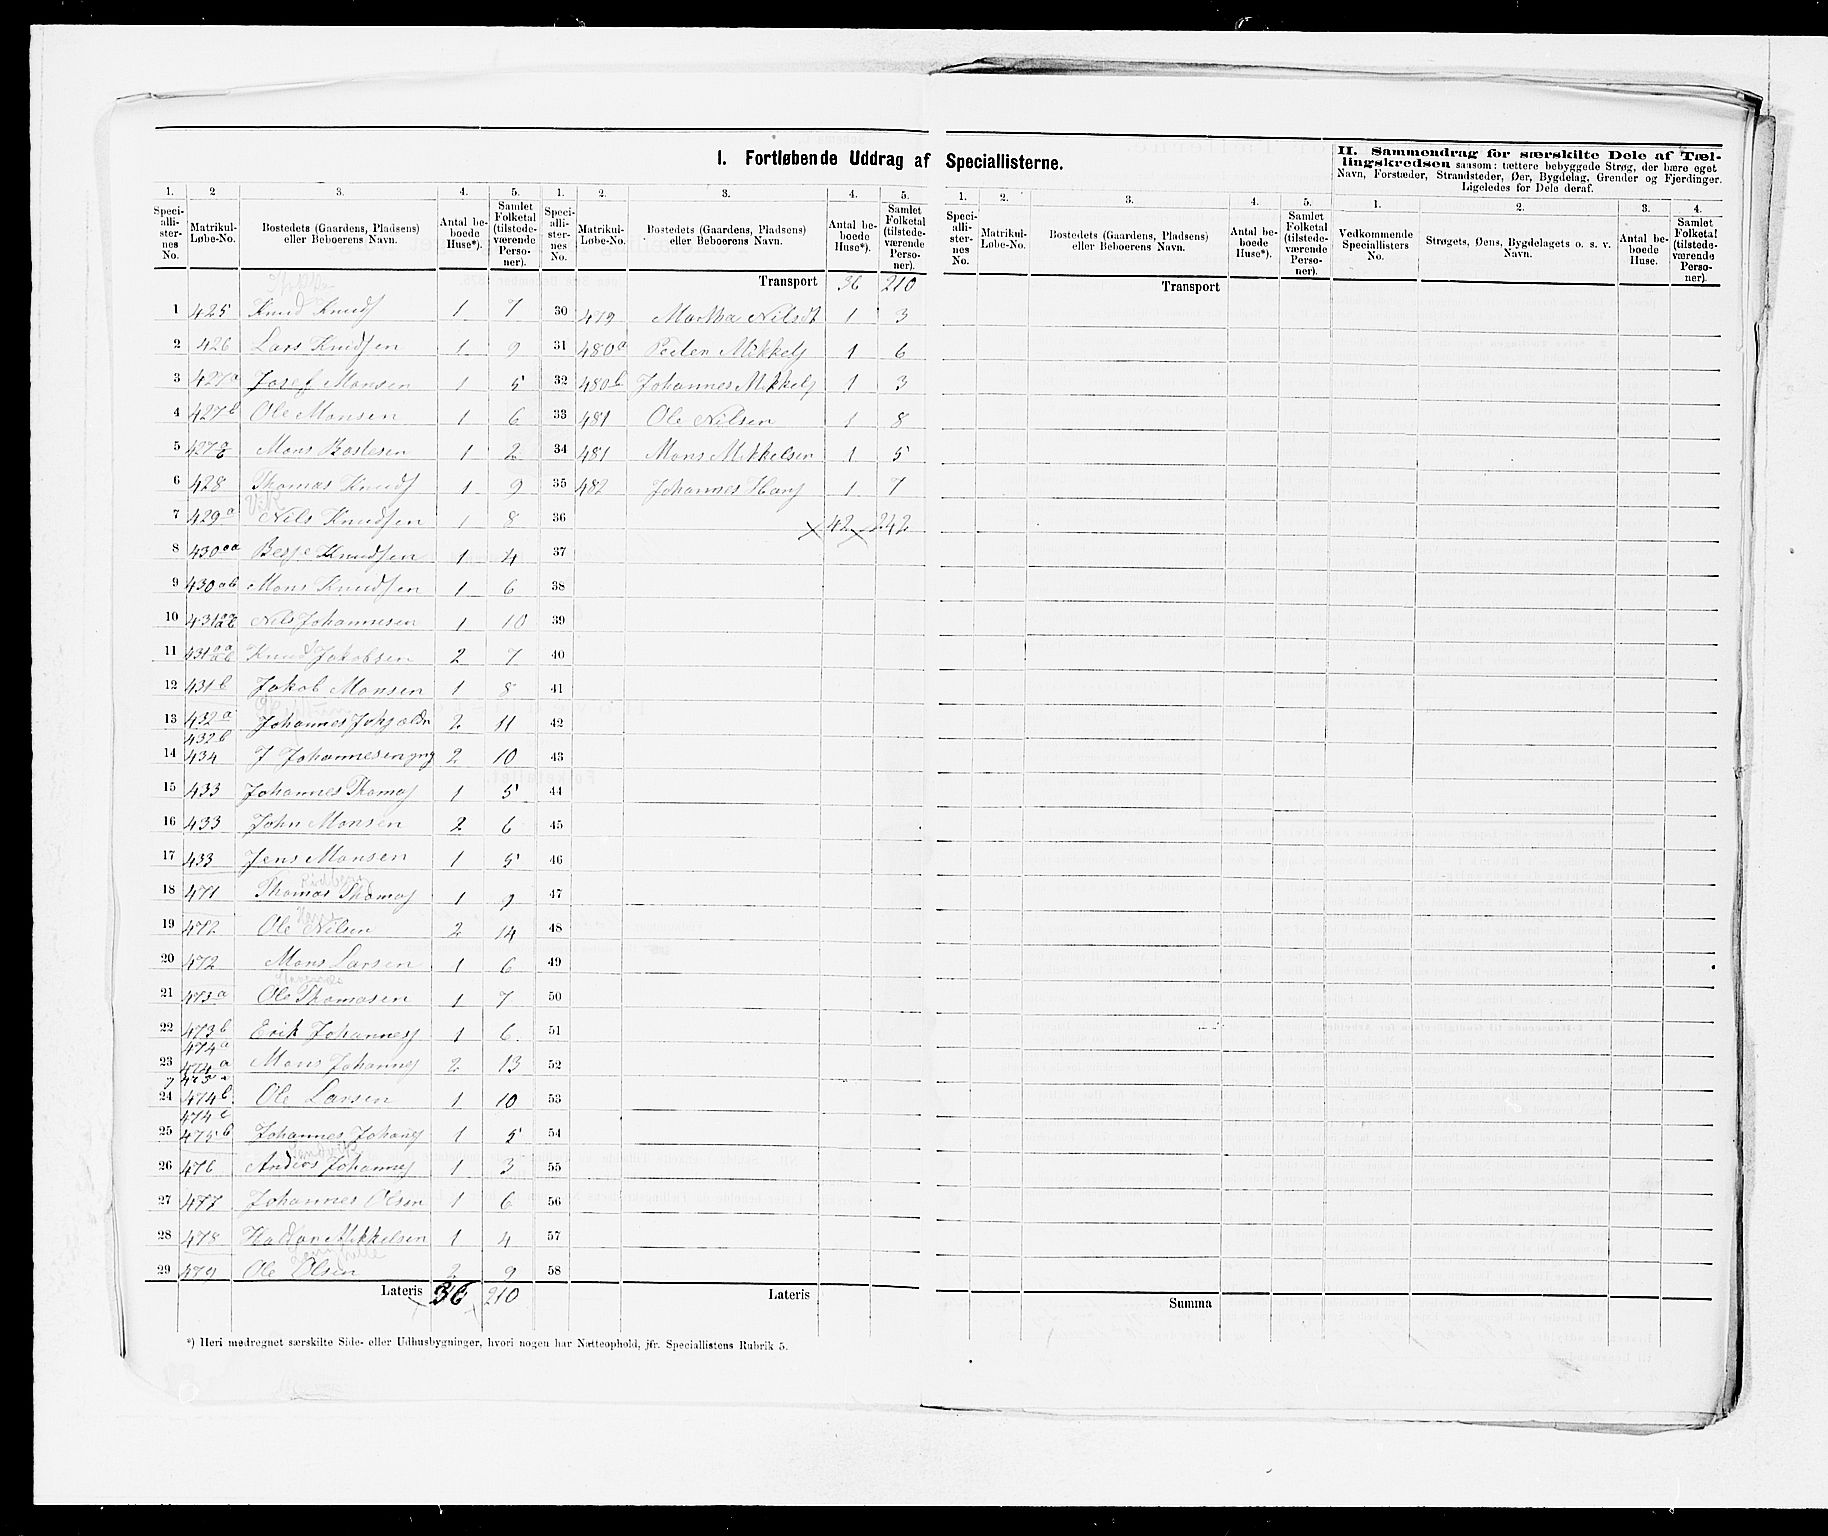 I. Fortløbende Uddrag af Speciallisterne.
1. 2 3. 4. 5.
Speciallisternes No. Matrikul-Løbe-No. Bostedets (Gaardens, Pladsens) eller Beboerens Navn. Antal beboede Huse*). Samlet Folketal (tilstedeværende Personer).
1 425 Knud Knuds 1 7
2 426 Lars Knudsen 1 9
3 427a Josef Monsen 1 5
4 427b Ole Monsen 1 6
5 427 Mons 1 2
6 428 Thomas Knuds 1 9
7 429a Nils Knudsen 1 8
8 430aa Knudsen 1 4
9 430ab Mons Knudsen 1 6
10 431 Nils Johannesen 1 10
11 431 Knud Jakobsen 2 7
12 431b Jakob Monsen 1 8
13 432a Johannes 2 11
432b
14 434 J Johannesen yng 2 10
15 433 Johannes Thomas 1 5
16 433 John Monsen 2 6
17 433 Jens Monsen 1 5
18 471 Thomas Thomas 1 9
19 472 Ole Nilsen 2 14
20 472 Mons Larsen 1 6
21 473a Ole Thomasen 1 7
22 473b Erik Johannes 1 6
474a
23 474a Mons Johannes 2 13
24 474b Ole Larsen 1 10
474c
25 475b Johannes Johans 1 5
26 476 Johannes 1 3
27 477 Johannes Olsen 1 6
28 478 Mikkelsen 1 4
29 479 Ole Olsen 2 9
Lateris 36 210
1. 2. 3. 4. 5.
Speciallisternes No. Matrikul-Løbe-No. Bostedets (Gaardens, Pladsens) eller Beboerens Navn. Antal beboede Huse*). Samlet Folketal (tilstedeværende Personer).
Transport 36 210
30 479 Martha Nilsdt 1 3
31 480a Peder Mikkels 1 6
32 480b Johannes Mikkels 1 3
33 481 Ole Nilsen 1 8
34 481 Mons Mikkelsen 1 5
35 482 Johannes Hans 1 7
36 42 242
37
38
39
40
41
42
43
44
45
46
47
48
49
50
51
52
53
54
55
56
57
58
Lateris
1. 2. 3. 4. 5.
Speciallisternes No. Matrikul-Løbe-No. Bostedets (Gaardens, Pladsens) eller Beboerens Navn. Antal beboede Huse*). Samlet Folketal (tilstedeværende Personer).
Transport
Summa
II. Sammendrag for særskilte Dele af Tællingskredsen saasom: tættere bebyggede Strøg, der bære eget
Navn, Forstæder, Strandsteder, Øer, Bygdelag, Grender og Fjerdinger.
Ligeledes for Dele deraf.
1. 2. 3. 4.
Vedkommende Speciallisters No. Strøgets, Øens, Bygdelagets o. s. v. Navn. Antal beboede Huse. Samlet Folketal (tilstedeværende Personer).
*) Heri medregnet særskilte Side- eller Udhusbygninger, hvori nogen har Natteophold, jfr. Speciallistens Rubrik 5.